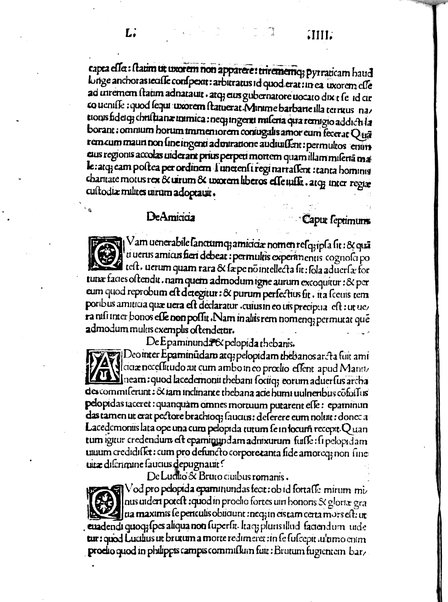 L. .IIII.
capta esset: statim ut uxorem non apparere: trirememq; pyrraticam haud
longe anchoras iecisse conspexit: arbitratus id quod erat: in ea uxorem esse
ad triremem statim adnatauit. atq; eius gubernatore uocato dixit se id cir
co uenisse: quod sequi uxorem statuerat. Minime barbarie illa territus na
tionis fideiq; christianæ inimica: neq; ingenti miseria qua remigio addicti la
borant: omnium horum immemorem coniugalis amor eum fecerat Quā
rem cum mauri non sine ingenti admiratione audiuissent: permultos enim
eius regionis accolas uiderant prius perpeti mortem quam illam miseriā ma
le: atq; eam postea per ordinem
regi narrassent: tanta hominis
charitate motus rex & uirum & uxorem liberos esse iussit. atq; inter regiæ
custodiæ milites uirum adoptauit.
De Amicitia Caput septimum
QVam uenerabile sanctumq; amicitiæ nomen resq; ipsa sit: & quā
uerus amicus fieri debeat: permultis experimentis cognosci po
test. uerum quam rara & sæpe nō intellecta sit: sola aduersæ for
tunæ facies ostendit. nam quem admodum igne aurum excoquitur: & per
eum quod reprobum est detegitur: & purum perfectius fit. ita sæuis tem
poribus amicitia quæ uera est declaratur. cuius in eo uis præcipua est: ut ue
ra nisi inter bonos esse non possit. Nam in aliis rem nomenq; permutat quē
admodum multis exemplis ostendetur.
De Epaminunda & pelopida thebanis.
ADeo inter Epaminūdam atq; pelopidam thebanos arcta fuit ami
ciciæ necessitudo aut cum ambo in prœlio essent apud Manti
neam: quod lacedemonii thebani sociiq; eorum aduersus archa
des commiserunt: & iam inclinante thebana acie humi uulneribus cōfossus
pelopidas iaceret: quanquam omnes mortuum putarent esse: epaminun
das tamen ut erat pectore brachioq; saucius: deserere eum noluit: donec a
Lacedemoniis lata ope una cum pelopida tutum se in locum recepit. Quan
tum igitur credendum est epaminundam adnixurum fuisse: si pelopidam
uiuum credidisset: cum pro defuncto corporetanta fide amoreq; non sine
uitæ discrimine saucius depugnauit?
De Lucilio & Bruto ciuibus romanis.
QVod pro pelopida epaminundas fecit: ob id fortasse mirum mi
nus uideri potest: quod in prœlio fortes uiri honoris & gloriæ gra
tia maximis se periculis obiiciunt: neq; in ea tam certa mors est: ut
euadendi quoq; spes aliqua non supersit. Itaq; pluris illud faciendum uide
tur: quod Lucilius ut brutum a morte redimeret: in se suscepit. ultimo enim
prœlio quod in philippis campis commissum fuit: Brutum fugientem bar,